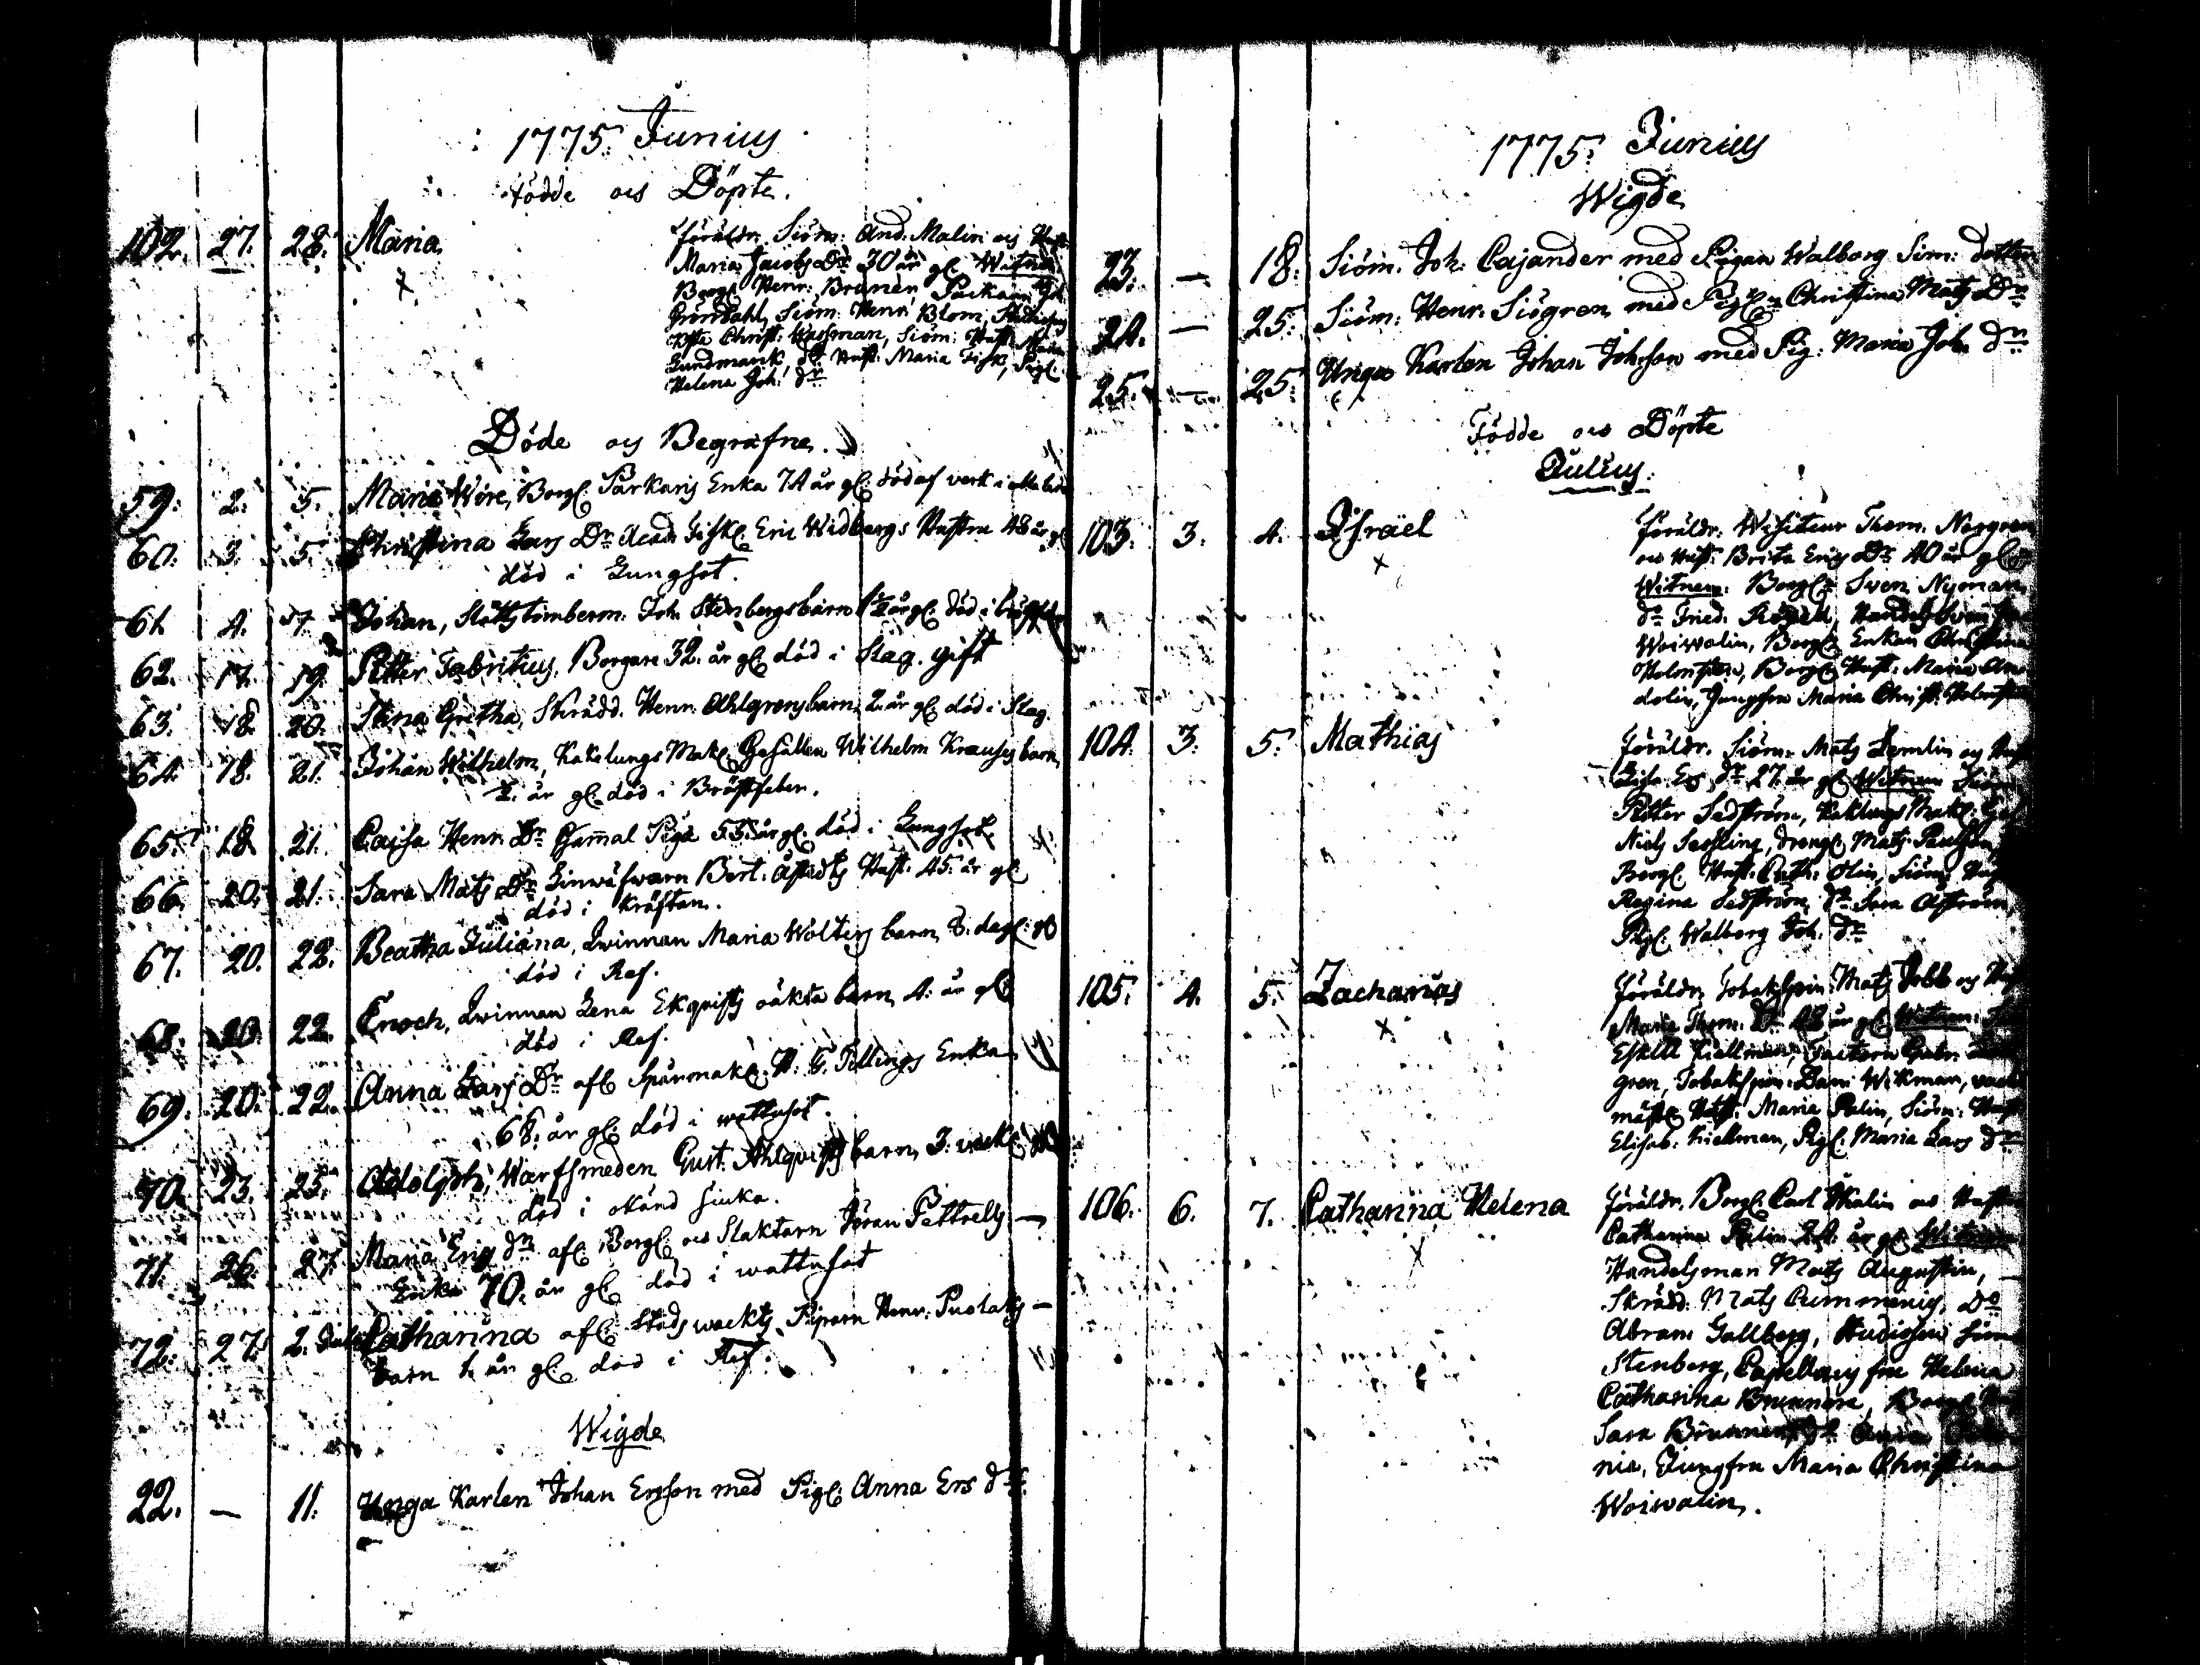 1775. Junius
Födde och Döpte.
102. 27. 28. Maria
Föräldr. Siöm: And. Malin och Hust.
Maria Jacobs Dr 30 år gl. Witne:
Borg: Henr: Brunen, Packar Joh
Gröndahl, Siöm. Henr. Blom,
Christ: Wassman, Siöm: Hust:
Lundmarck, do Hust: Maria Fisk, Pig:
Helena Joh: dr
Döde och Begrafne.
59. 2. 5. Maria Wire, Borg: Parkars Enka 74 år gl. död af verk i
60. 3. 5. Christina Lars Dr Acad: Fisk: Eric Widbergs Hustru 48 år gl
död i Lungsot.
61. 4. 7. Johan, Slåttstimberm. Joh. Stenbergs barn 1½ år gl. död i
62. 17. 19. Petter Fabritius, Borgare 32. år gl. död i Slag. gift
63. 18. 20. Stina Gretha, Skrädd. Henr. Ahlgrens barn, 2. år gl. död i Slag.
64. 18. 21. Johan Wilhelm, Kakelungs Mak: Gesällen Wilhelm Krauses barn,
år gl. död i Bröstfeber.
65. 18. 21. Caisa Henr. Dr Gammal Piga 53. år gl. död i Lungsot
66. 20. 21. Sara Mats Dr Linwäfwarn Bert. Åstedts Hust. 45. år gl.
död i Kräftan.
67. 20. 22. Beatha Juliana, Qwinnan Maria Wolters barn, 8. dag: gl
död i Ref.
68. 20. 22. Enoch, Qwinnan Lena Ekqvists oäkta barn, 4. år gl
död i Ref.
69. 20. 22. Anna Lars Dr afl: Spånmak: H. G. Tillings Enka
68. år gl. död i wattusot.
70. 23. 25. Adolph, Warfsmeden Gust. Ahlqvists barn, 3. veck: gl
död i okänd siuka.
71. 26. 27. Maria Erics dr afl: Borg: och Slaktarn Jöran Pettrells —
Enka 70. år gl. död i wattusot
72. 27. 2. Catharina afl: Stads wackts Piparn Henr: Puolaks —
barn 1. år gl. död i Ref.
Wigde
22. — 11. Unga Karlen Johan Ersson med Pig: Anna Ers dr
1775. Junius
Wigde
23. — 18. Siöm. Joh: Cajander med Pigan Walborg Sim: dotter
24. — 25. Siöm: Henr: Siögren med Pig: Christina Mats Dr
25. — 25. Unga Karlen Johan Johsson med Pig: Maria Joh: dr
Födde och Döpte
Julius.
103. 3. 4. Israel
Föräldr. Wisiteur Thom. Norgren
och Hust: Brita Erics Dr 40 år gl.
Witnen: Borg: Sven Nyman,
do Fried. Handelsbeven
Woiwalin, Borg: Enkan Christina
Holmsten, Borg: Hust. Maria An
dolin, Jungfru Maria Christ. Holmsten
104. 3. 5. Mathias
Föräldr. Siöm: Mats Lemlin och Hust
Lisa Ers dr 27. år gl. Witnen Siöm
Petter Sedström, Kaklungs Mak: Ges
Niels Sessling, Dreng: Mats Paulsson,
Borg: Hust: Cath: Olin, Siöm: Hust
Regina Sedström, do Sara Åström,
Pig: Walborg Joh. dr
105. 4. 5. Zacharias
Föräldr. Tobakspin: Mats Jobb och Hust
Maria Thom. Dr 48 år gl. Witnen:
Eskill Kiellman, Factorn Gabr:
gren, Tobakspin: Dan: Wikman, vackt
mäst: Hust: Maria Palin, Siöm: Hust
Elisab. Kiellman, Pig: Maria Lars dr
106. 6. 7. Catharina Helena
Föräldr. Borg: Carl Malin och Hustru
Catharina Palin 24. år gl. Witnen
Handelsman Mats Augustin,
Skrädd: Mats Cummenius, Do
Abram Gallberg, Studiosen Sim
Stenberg, Capellans fru Helena
Catharina Brunnera, Borg: Hust
Sara Brunnera, do Anna
nia, Jungfru Maria Christina
Woiwalin.